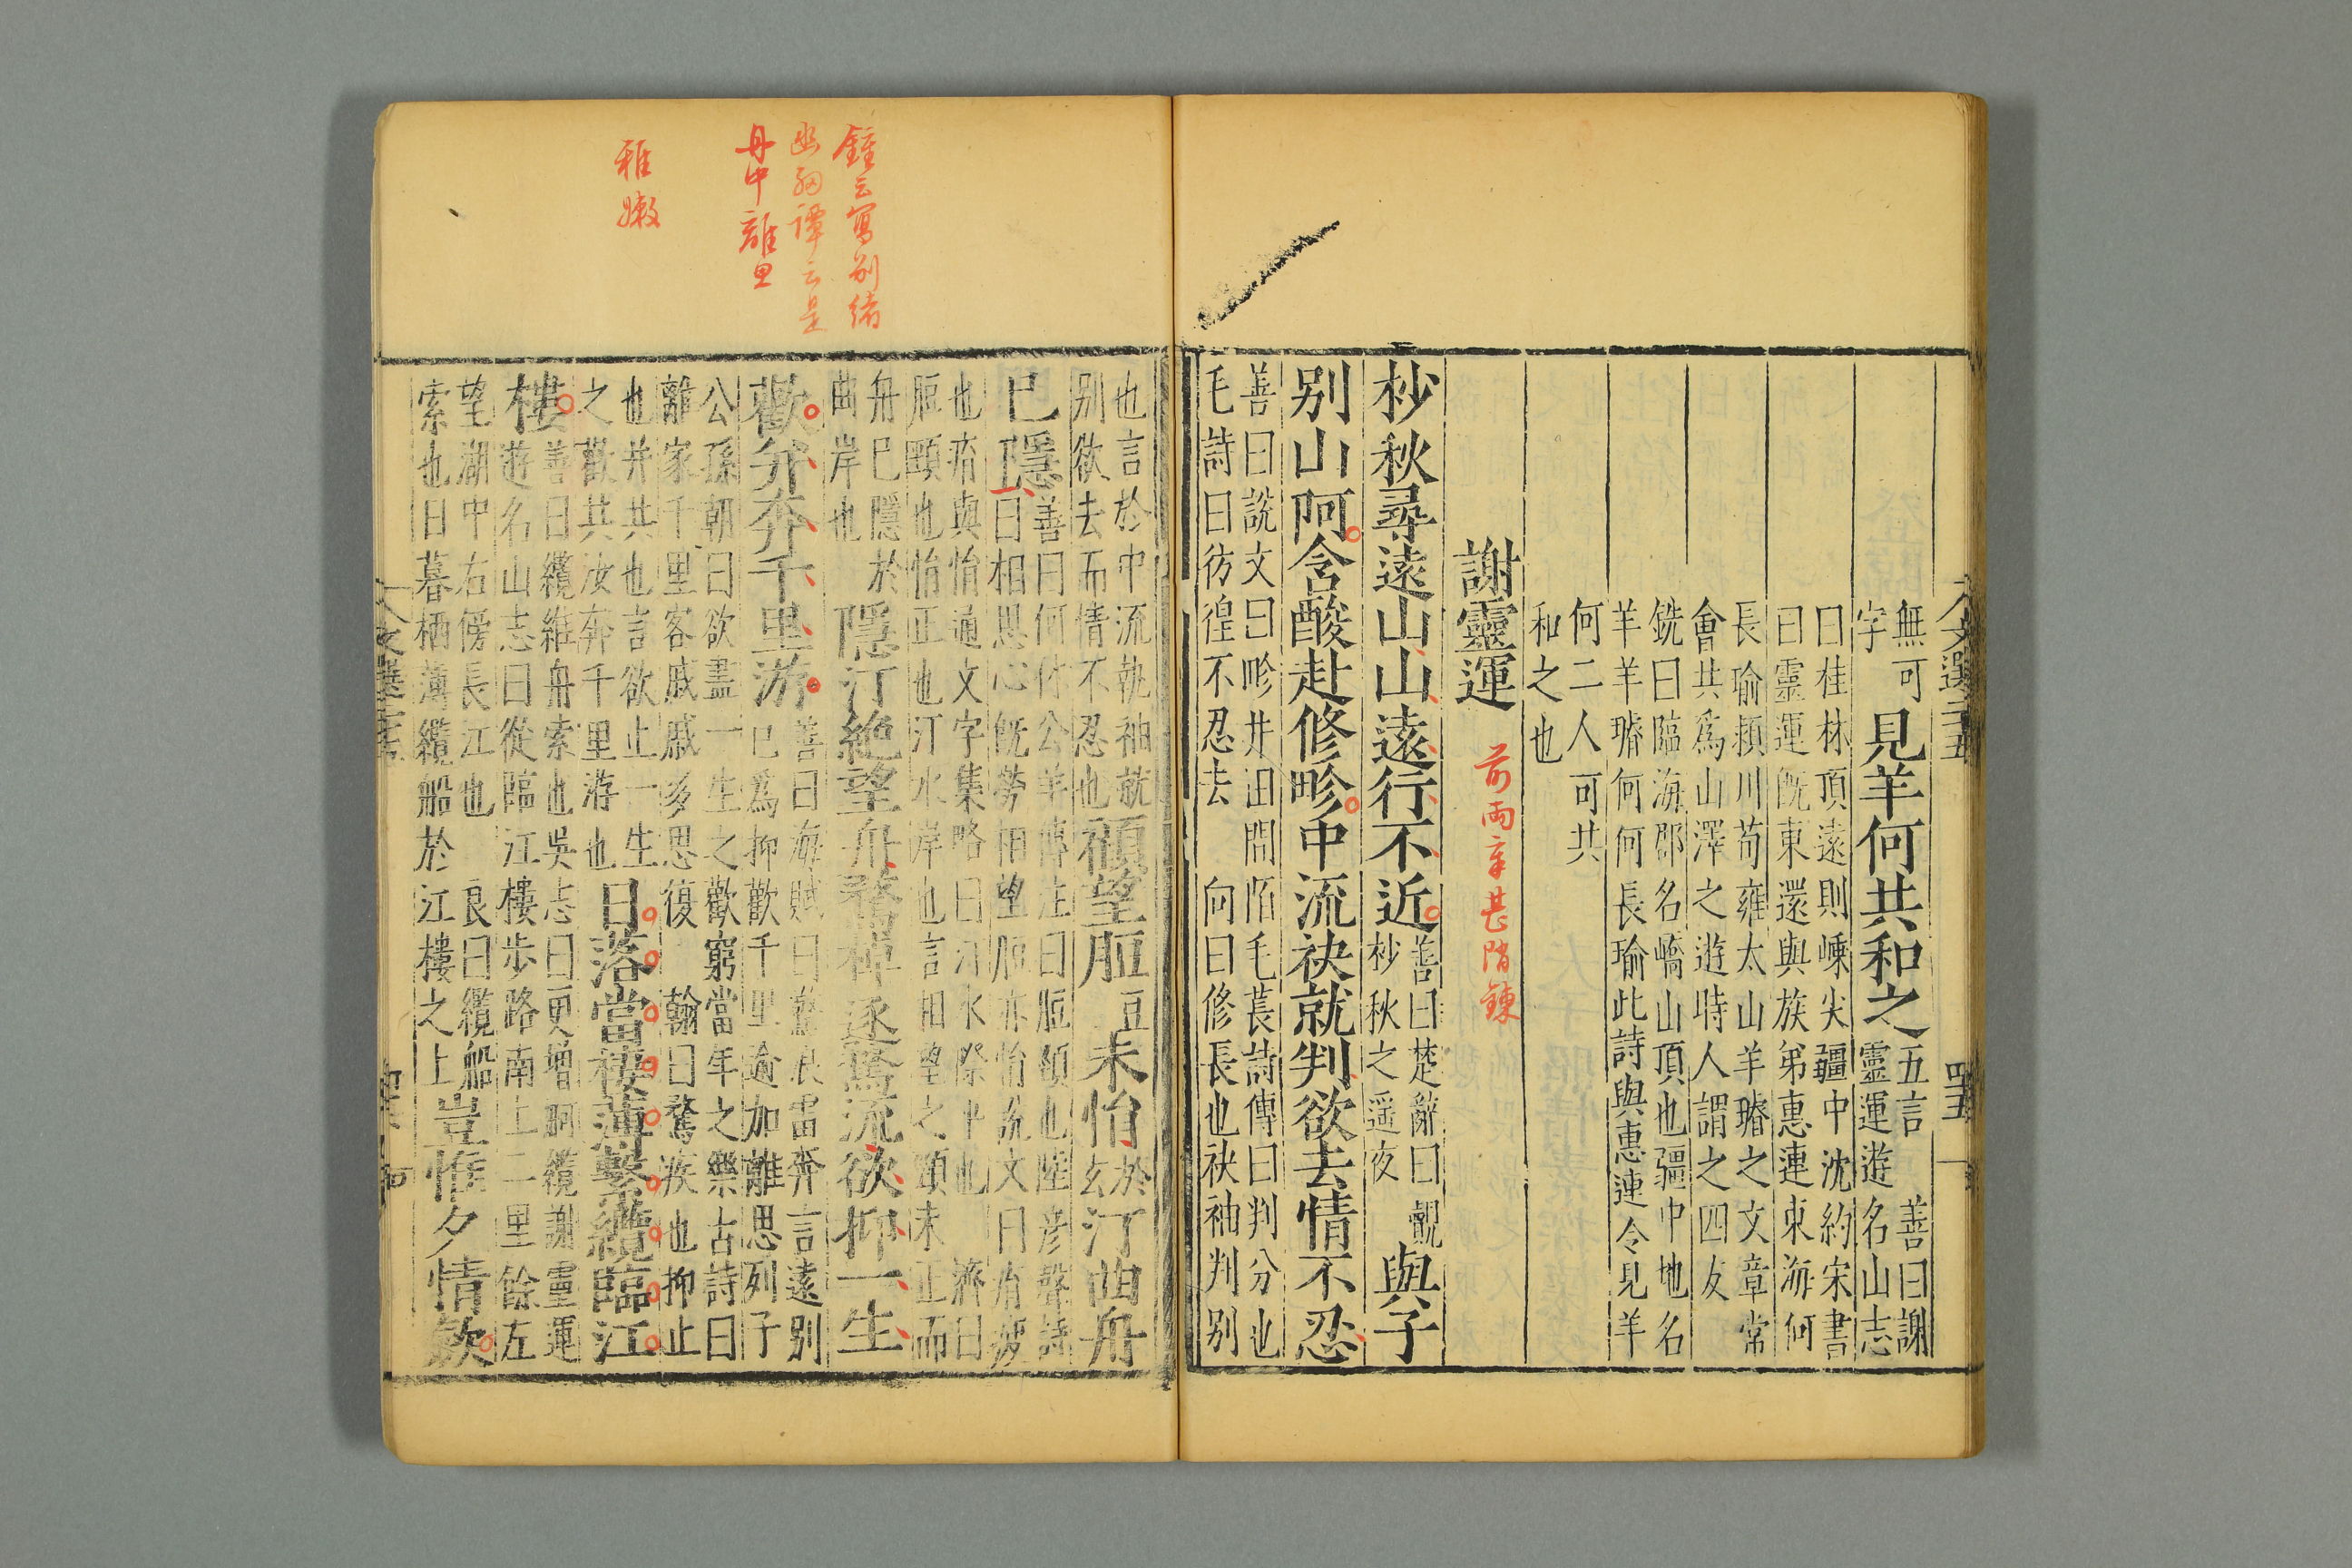 文選二十五 四十五
無可 見羊何共和之 五言 善曰謝
字 靈運遊名山志
曰桂林頂遠則嵊尖疆中沈約宋書
曰靈運既東還與族弟惠連東海何
長瑜潁川荀雍太山羊璿之文章常
會共為山澤之遊時人謂之四友
銑曰臨海郡名嶠山頂也疆中地名
羊羊璿何何長瑜此詩與惠連令見羊
何二人可共
和之也
謝靈運
前兩章甚
杪秋尋遠山山遠行不近 善曰楚辭曰靚杪秋之遥夜 與子
别山阿含酸赴修畛中流袂就判欲去情不忍
善曰說文曰畛井田間陌毛萇詩傳曰判分也
毛詩曰彷徨不忍去 向曰修長也袂袖判别
也言於中流執袖就
别欲去而情不忍也 顧望脰 豆 未悁 於玄 汀曲舟
已隱 善曰何休公羊傳注曰脰頸也陸彦聲詩
曰相思心既勞相望脰亦悁說文曰痏疲
也痏與悁通文字集略曰汀水際平也 濟曰
脰頸也悁正也汀水岸也言相望之頸未正而
舟已隱於
曲岸也 隱汀絶望舟騖棹逐驚流欲抑一生
歡并奔千里游 善曰海賦曰驚浪雷奔言遠别
已爲抑歡千里逾加離思列子
公孫朝曰欲盡一生之歡窮當年之樂古詩曰
離家千里客戚戚多思復 翰曰騖疾也抑止
也并共也言欲止一生
之歡共汝奔千里游也 日落當棲薄繫纜臨江
樓 善曰纜維舟索也吳志曰更增舸纜謝靈運
遊名山志曰從臨江樓步路南上二里餘左
望湖中右傍長江也 良曰纜船
索也日暮栖薄纜船於江樓之上 豈惟夕情歛
鍾云寫别緒
幽細譚云是
丹中離思
稚嫩